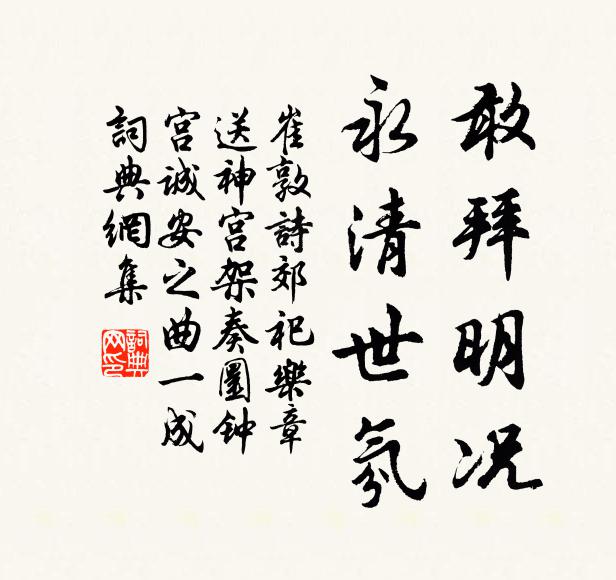 敢拜明况
永清世氛
崔敦詩郊祀樂章
送神宫架奏圜钟
宫诚安之曲一成
詞典網集
詞典
网印